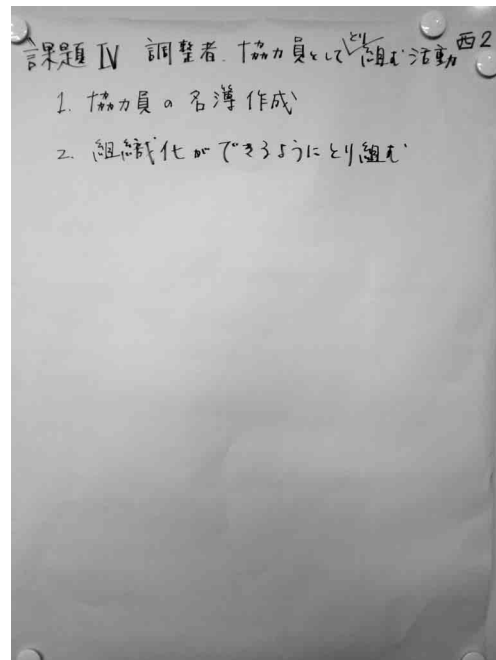 課題Ⅳ 調整者、協力員としてとり組む活動 西2
1. 協力員の名簿作成
2. 組織化ができるようにとり組む